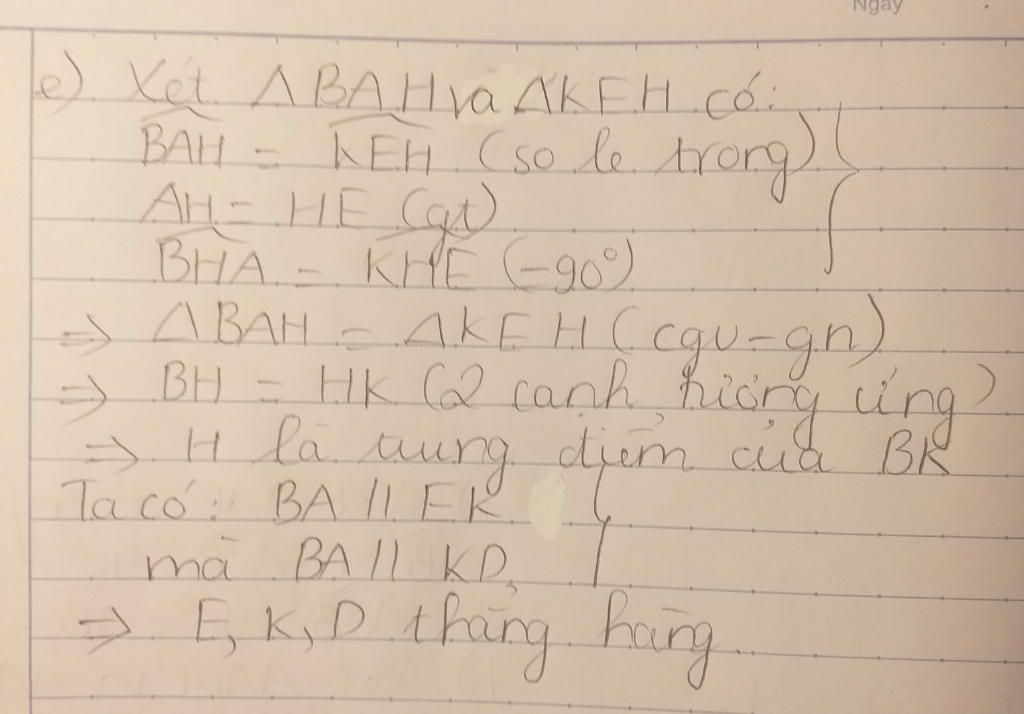 Ngày
e) Xét ΔBAH và ΔKEH có:
BAH = KEH (so le trong)
AH = HE (gt)
BHA = KHE (=90°)
⇒ ΔBAH = ΔKEH (cgv-gn)
⇒ BH = HK (2 cạnh tương ứng)
⇒ H là trung điểm của BK
Ta có: BA // EK
mà BA // KD,
⇒ E, K, D thẳng hàng.